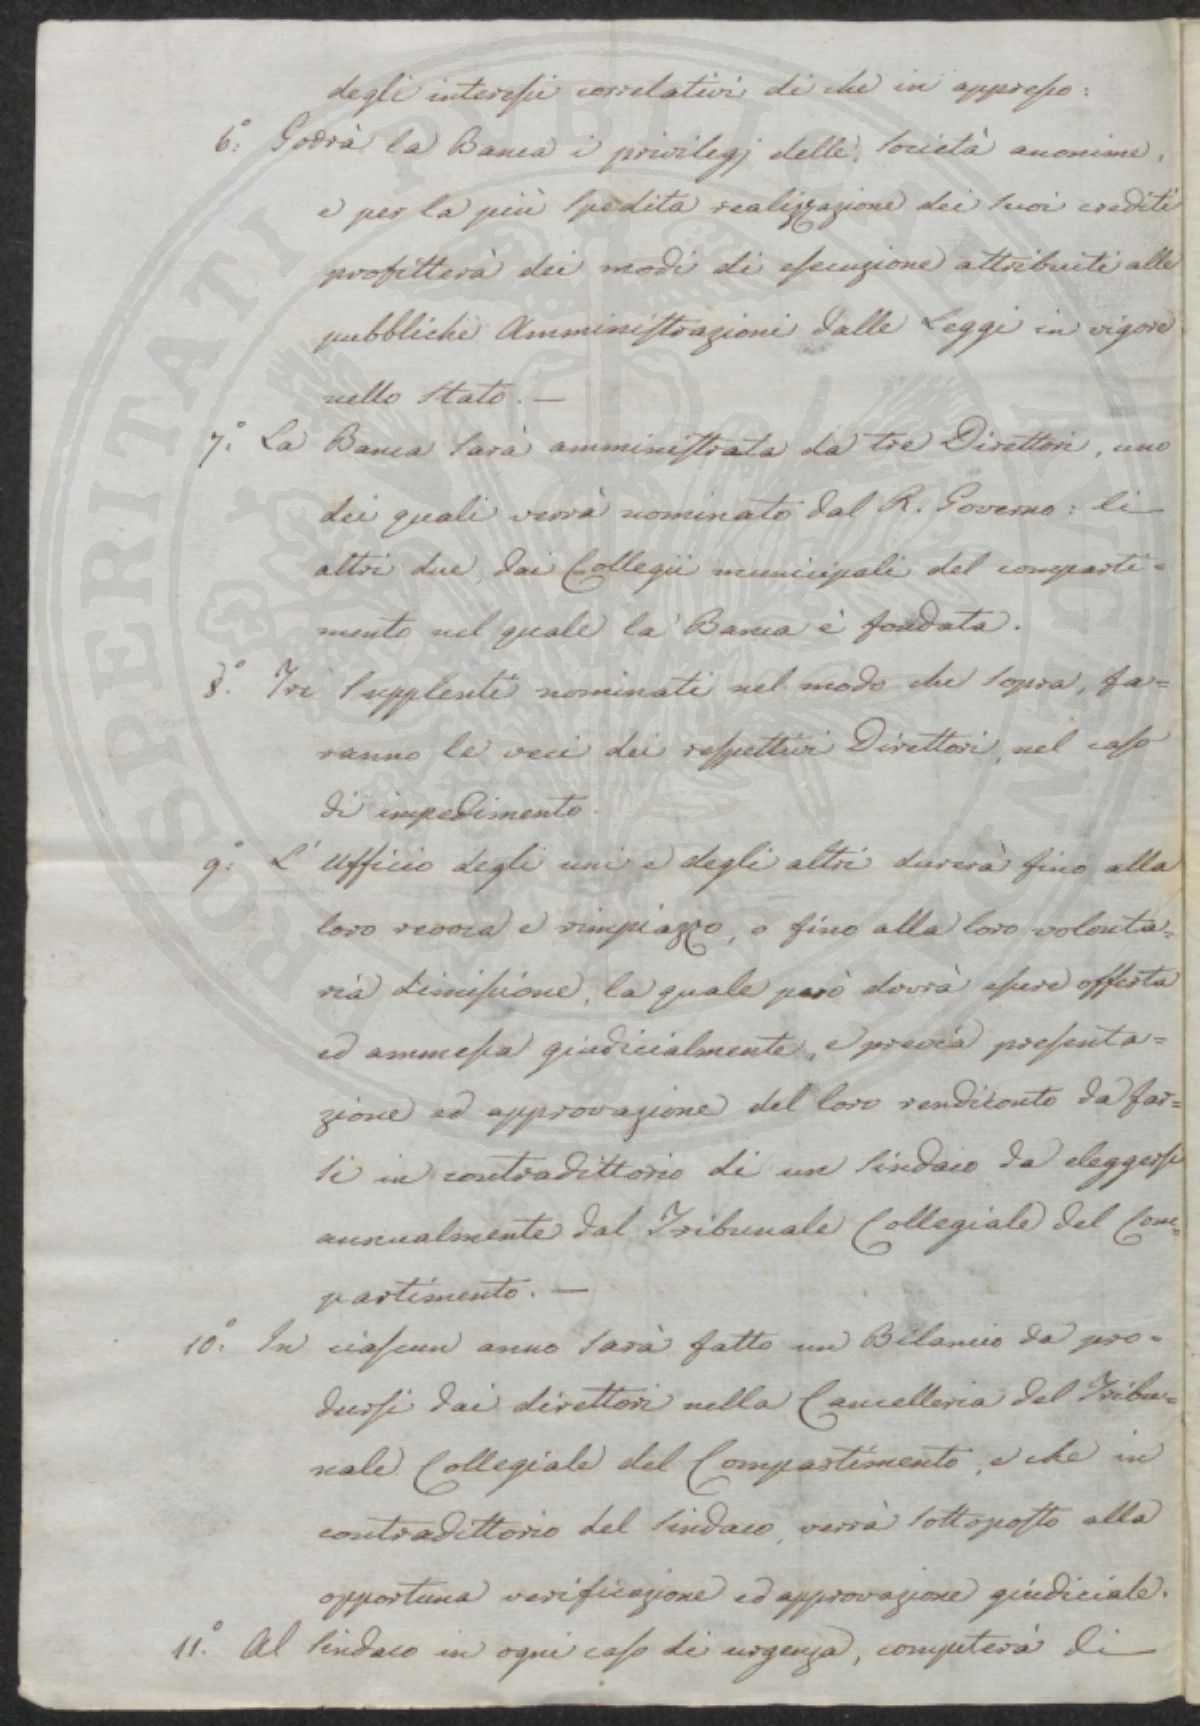 degli interessi correlativi di che in appresso:
6.° Godrà la Banca i privilegj delle Società anonime,
e per la più spedita realizzazione dei suoi crediti
profitterà dei modi di esecuzione attribuiti alle
pubbliche Amministrazioni dalle Leggi in vigore
nello Stato. —
7.° La Banca sarà amministrata da tre Direttori, uno
dei quali verrà nominato dal R. Governo: li
altri due, dai Collegii municipali del comparti=
mento nel quale la Banca è fondata.
8.° Tre Supplenti nominati nel modo che sopra, fa=
ranno le veci dei respettivi Direttori, nel caso
di impedimento.
9.° L'Ufficio degli uni e degli altri durerà fino alla
loro revoca e rimpiazzo, o fino alla loro volonta=
ria dimissione, la quale però dovrà essere offerta
ed ammessa giudicialmente, e previa presenta=
zione ed approvazione del loro rendiconto da far=
si in contradittorio di un Sindaco da eleggersi
annualmente dal Tribunale Collegiale del Com=
partimento. —
10.° In ciascun anno sarà fatto un Bilancio da pro=
dursi dai direttori nella Cancelleria del Tribu=
nale Collegiale del Compartimento, e che in
contradittorio del Sindaco, verrà sottoposto alla
opportuna verificazione ed approvazione giudiciale.
11.° Al Sindaco in ogni caso di urgenza, competerà di
PROSPERITATI PUBLICAE AUGENDAE